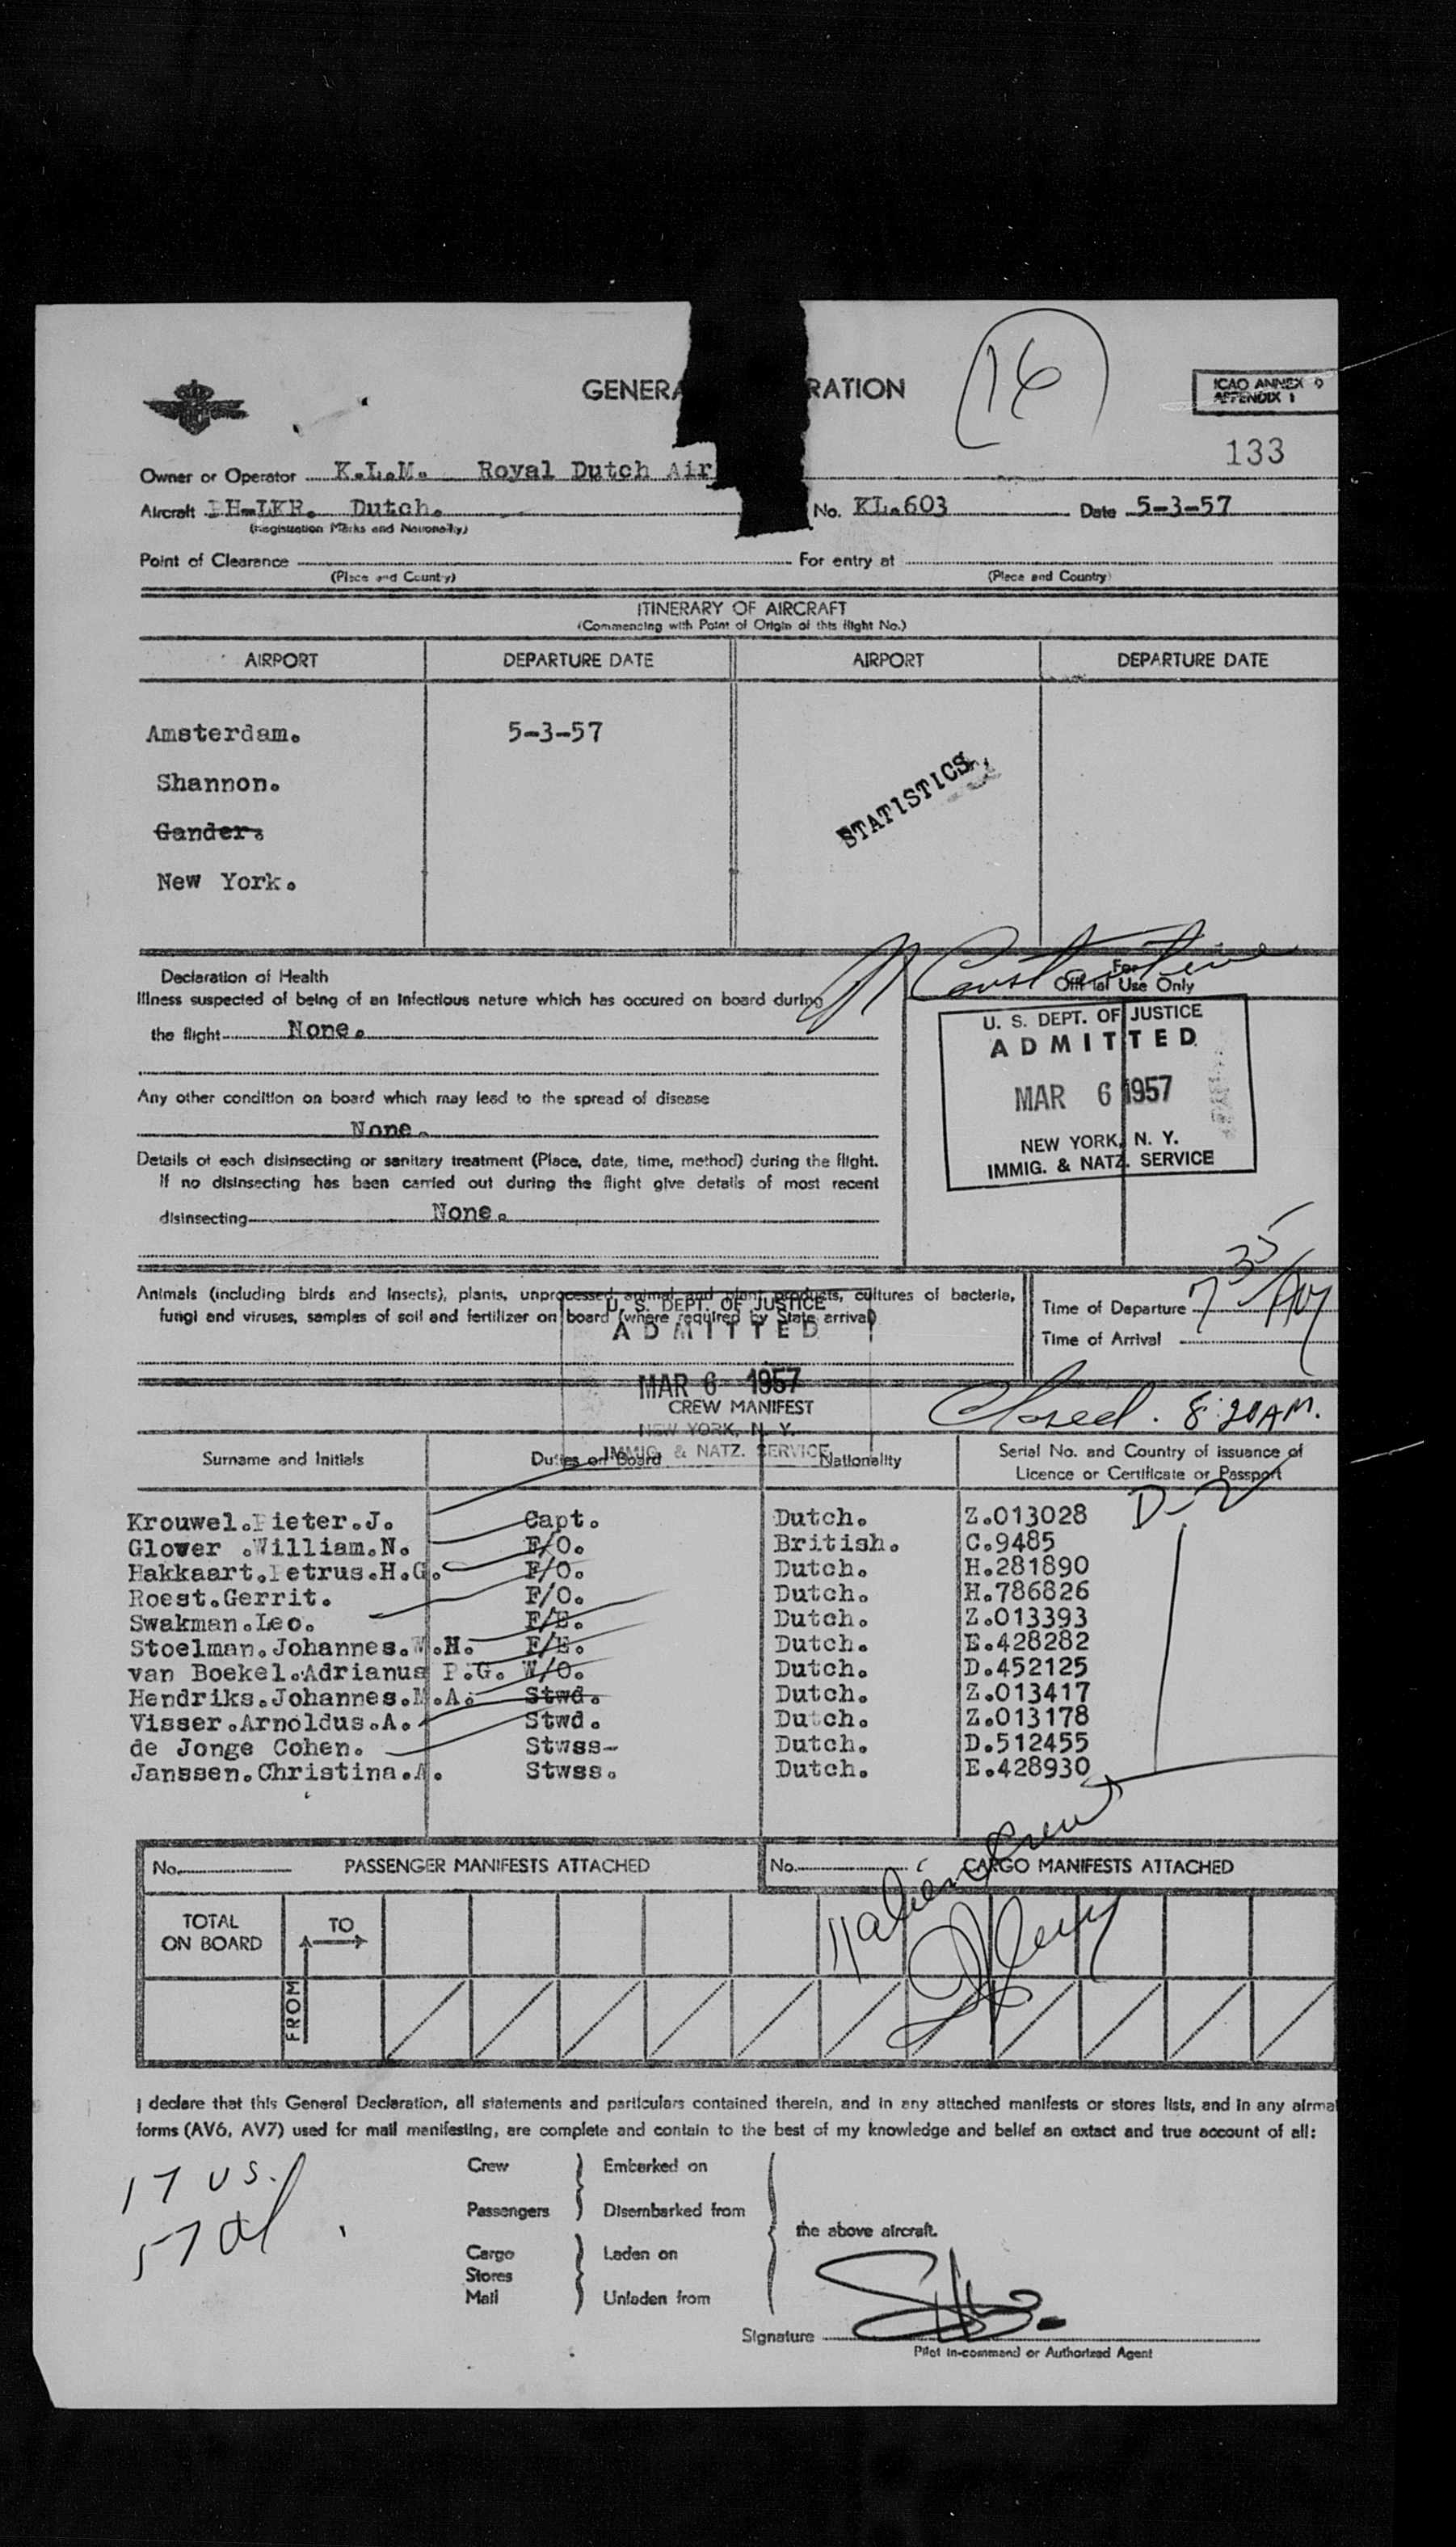 GENERA RATION
16
ICAO ANNEX 9
APPENDIX 1
133
Owner or Operator K.L.M. Royal Dutch Air
Aircraft PH-LKR. Dutch. No. KL.603 Date 5-3-57
(Registration Marks and Nationality)
Point of Clearance For entry at
(Place and Country) (Place and Country)
ITINERARY OF AIRCRAFT
(Commencing with Point of Origin of this flight No.)
AIRPORT DEPARTURE DATE AIRPORT DEPARTURE DATE
Amsterdam. 5-3-57
Shannon.
STATISTICS
Gander.
New York.
Declaration of Health
For
Official Use Only
Illness suspected of being of an infectious nature which has occured on board during
the flight None.
U. S. DEPT. OF JUSTICE
ADMITTED
MAR 6 1957
NEW YORK, N. Y.
IMMIG. & NATZ. SERVICE
Any other condition on board which may lead to the spread of disease
None.
Details of each disinsecting or sanitary treatment (Place, date, time, method) during the flight.
If no disinsecting has been carried out during the flight give details of most recent
disinsecting None.
Animals (including birds and insects), plants, unprocessed animal and plant products, cultures of bacteria,
fungi and viruses, samples of soil and fertilizer on board (where required by State arrival)
Time of Departure 7 35/AM
Time of Arrival
U. S. DEPT. OF JUSTICE
ADMITTED
MAR 6 1957
NEW YORK, N. Y.
IMMIG. & NATZ. SERVICE
CREW MANIFEST
Closed. 8:20 AM.
Surname and Initials Duties on Board Nationality Serial No. and Country of issuance of
Licence or Certificate or Passport
D-2
Krouwel.Pieter.J. Capt. Dutch. Z.013028
Glover .William.N. F/O. British. C.9485
Hakkaart.Petrus.H.G. F/O. Dutch. H.281890
Roest.Gerrit. F/O. Dutch. H.786826
Swakman.Leo. F/E. Dutch. Z.013393
Stoelman.Johannes.W.H. F/E. Dutch. E.428282
van Boekel.Adrianus P.G. W/O. Dutch. D.452125
Hendriks.Johannes.M.A. Stwd. Dutch. Z.013417
Visser.Arnoldus.A. Stwd. Dutch. Z.013178
de Jonge Cohen. Stwss- Dutch. D.512455
Janssen.Christina.A. Stwss. Dutch. E.428930
11 alien crew
No. PASSENGER MANIFESTS ATTACHED No. CARGO MANIFESTS ATTACHED
TOTAL
ON BOARD
TO
FROM
I declare that this General Declaration, all statements and particulars contained therein, and in any attached manifests or stores lists, and in any airmai
forms (AV6, AV7) used for mail manifesting, are complete and contain to the best of my knowledge and belief an extact and true account of all:
17 US.
57 al
Crew Embarked on
Passengers Disembarked from
the above aircraft.
Cargo Laden on
Stores
Mail Unladen from
Signature
Pilot in-command or Authorized Agent